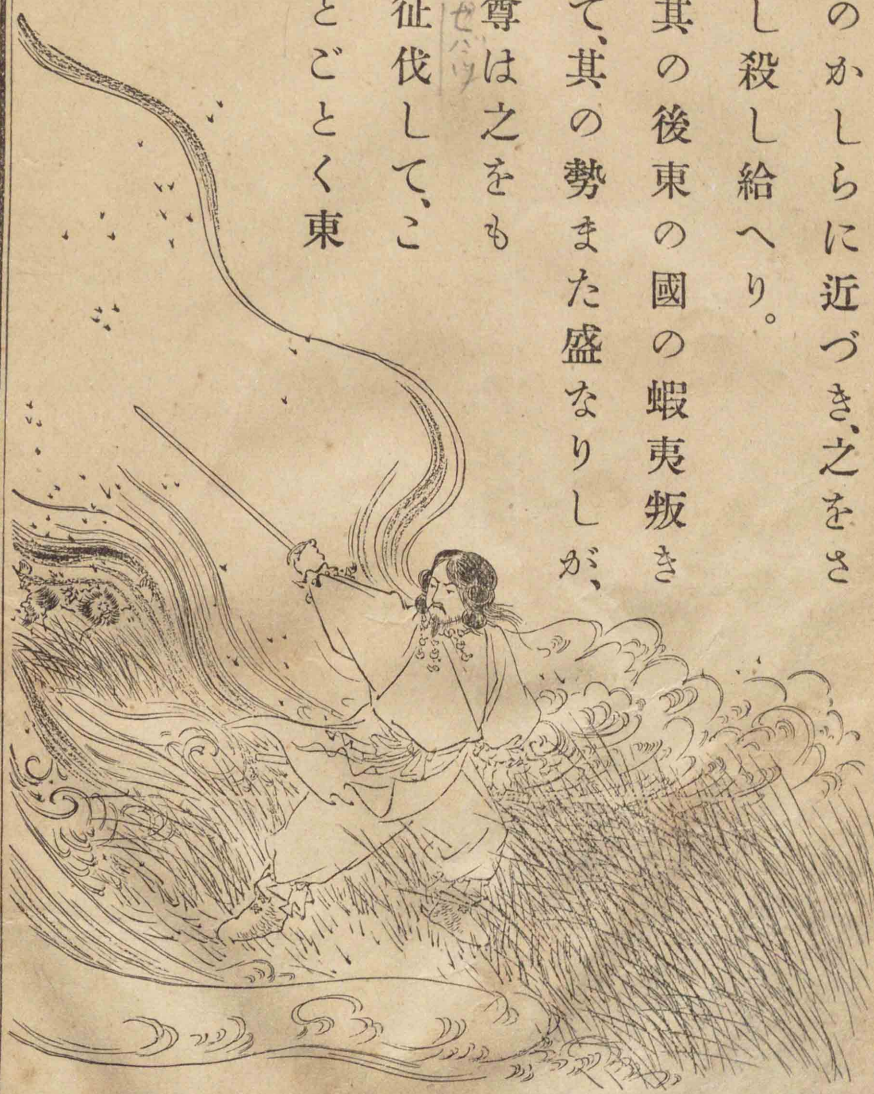 のかしらに近づき、之をさ
し殺し給へり。
其の後東の國の蝦夷叛き
て、其の勢また盛なりしが、
尊は之をも
セバツ
征伐して、こ
とごとく東